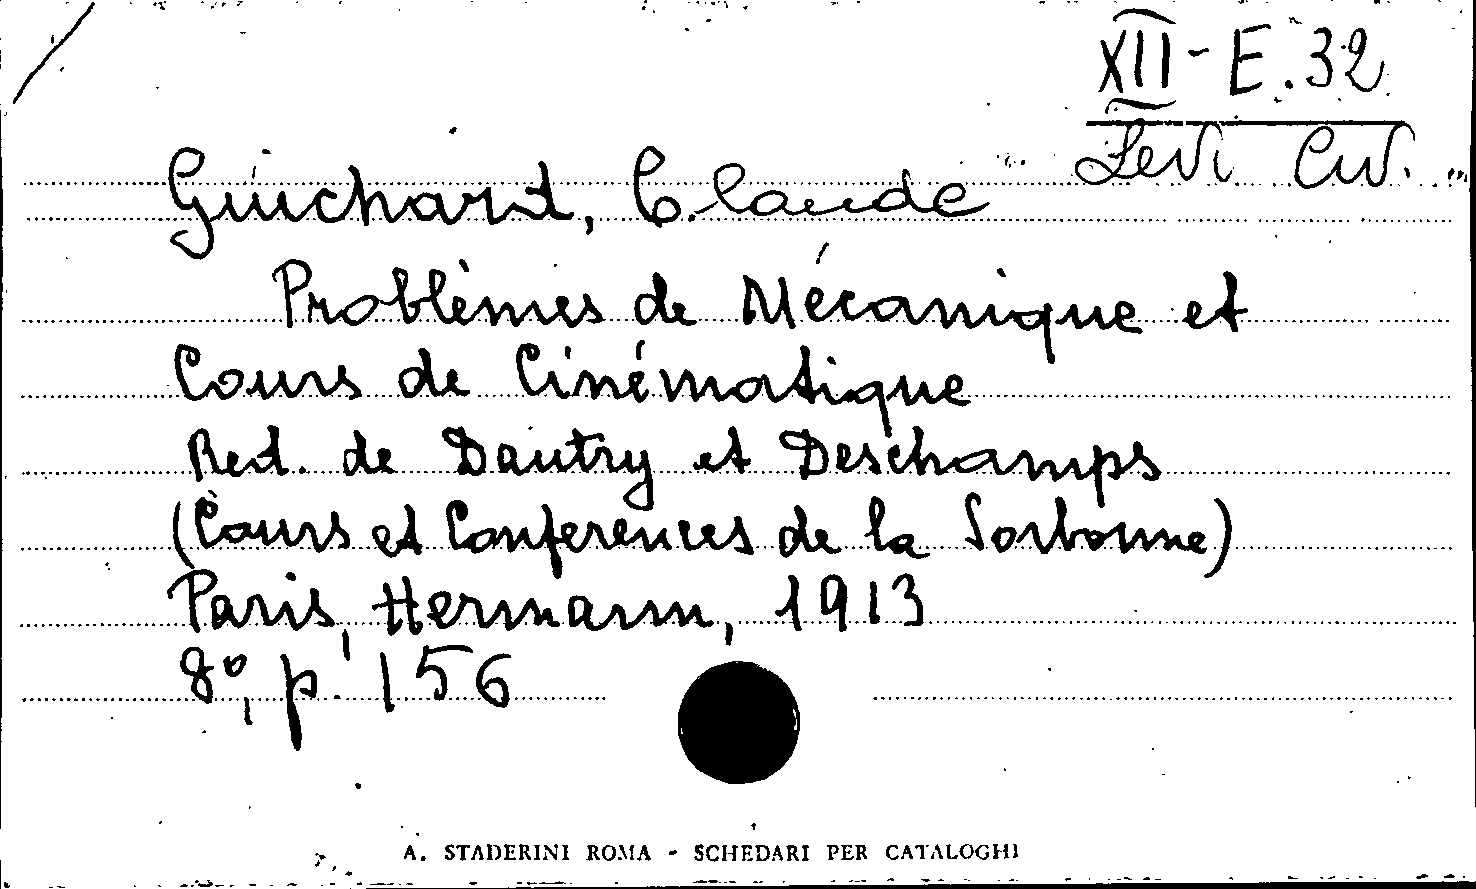 XII - E. 32
Levi Civ.
Guichard, Claude
Problèmes de Mécanique et
Cours de Cinématique
Red. de Dautry et Deschamps
(Cours et Conferences de la Sorbonne)
Paris, Hermann, 1913
8º, p. 156
A. STADERINI ROMA - SCHEDARI PER CATALOGHI